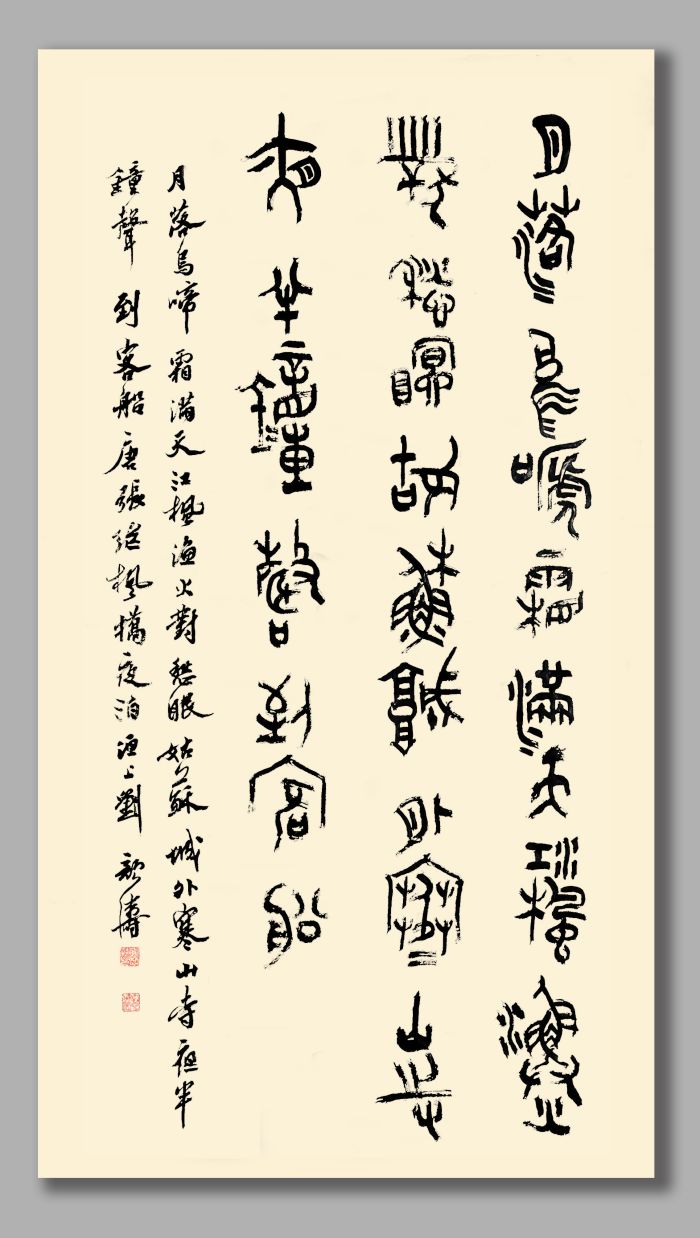 月落烏嗁霜滿天江楓漁火
對愁眠姑蘇城外寒山寺
夜半鐘聲到客船
月落烏啼霜滿天江楓漁火對愁眠姑蘇城外寒山寺夜半
鐘聲到客船唐張継楓橋夜泊洹上劉濤